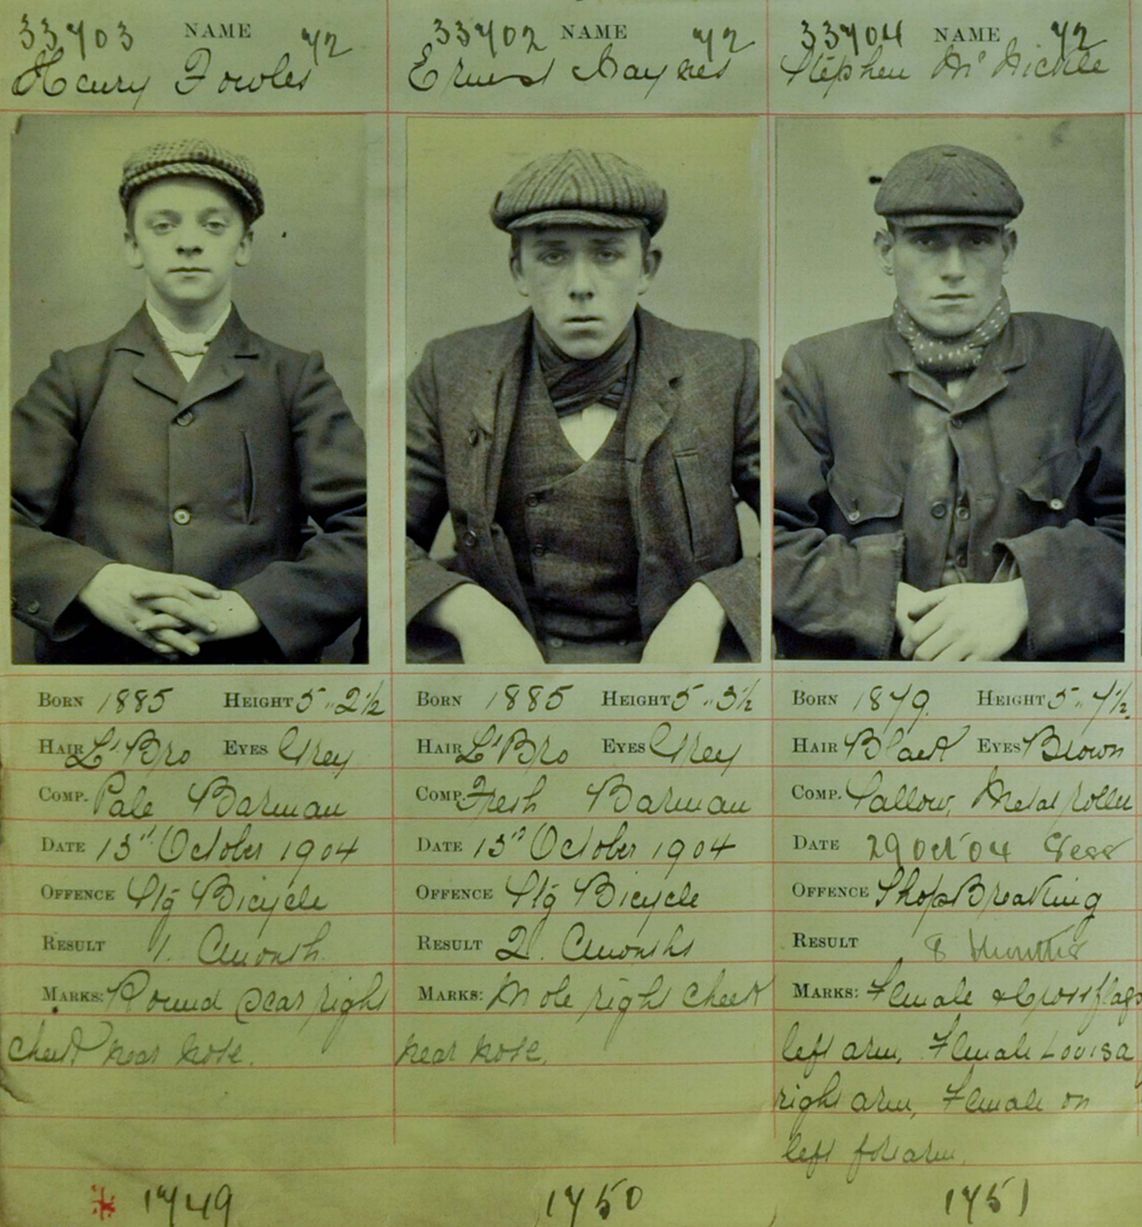 33703 NAME 72
Henry Fowler
33702 NAME 72
Ernest Haynes
33704 NAME 72
Stephen McNickle
BORN 1885 HEIGHT 5 " 2 ½
HAIR Lt Bro EYES Grey
COMP. Pale Barman
DATE 13th October 1904
OFFENCE Stg Bicycle
RESULT 1. Cmonth
MARKS: Round scar right
cheek near nose.
1749
BORN 1885 HEIGHT 5 " 3 ½
HAIR Lt Bro EYES Grey
COMP. Fresh Barman
DATE 13th October 1904
OFFENCE Stg Bicycle
RESULT 2. Cmonths
MARKS: Mole right cheek
near nose.
1750
BORN 1879. HEIGHT 5 " 7 ½.
HAIR Black EYES Brown
COMP. Sallow, Metal roller
DATE 29 Oct 04 Sess
OFFENCE ShopBreaking
RESULT 8 Months
MARKS: Female & Cross flags
left arm, Female Louisa
right arm, Female on
left forearm.
1751